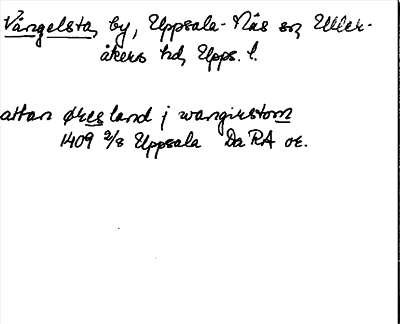 Vängelsta, by, Uppsala-Näs sn, Uller-
åkers hd, Upps. l.
attan øres land j wangirstom
1409 2/8 Uppsala Da RA or.